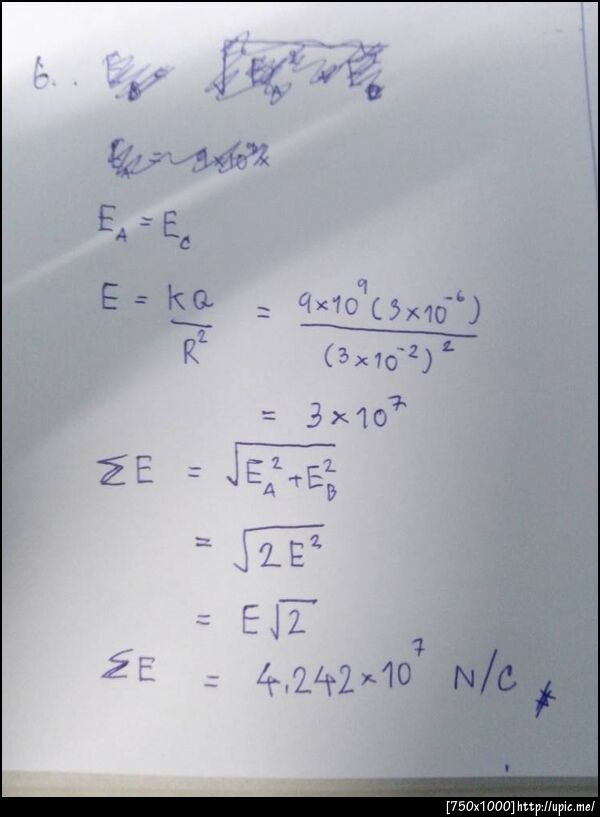 6..
E_A = E_C
E = kQ/R² = 9×10⁹(3×10⁻⁶)/(3×10⁻²)²
= 3×10⁷
ΣE = √(E_A² + E_B²)
= √(2E²)
= E√2
ΣE = 4.242×10⁷ N/C
[750x1000]http://upic.me/